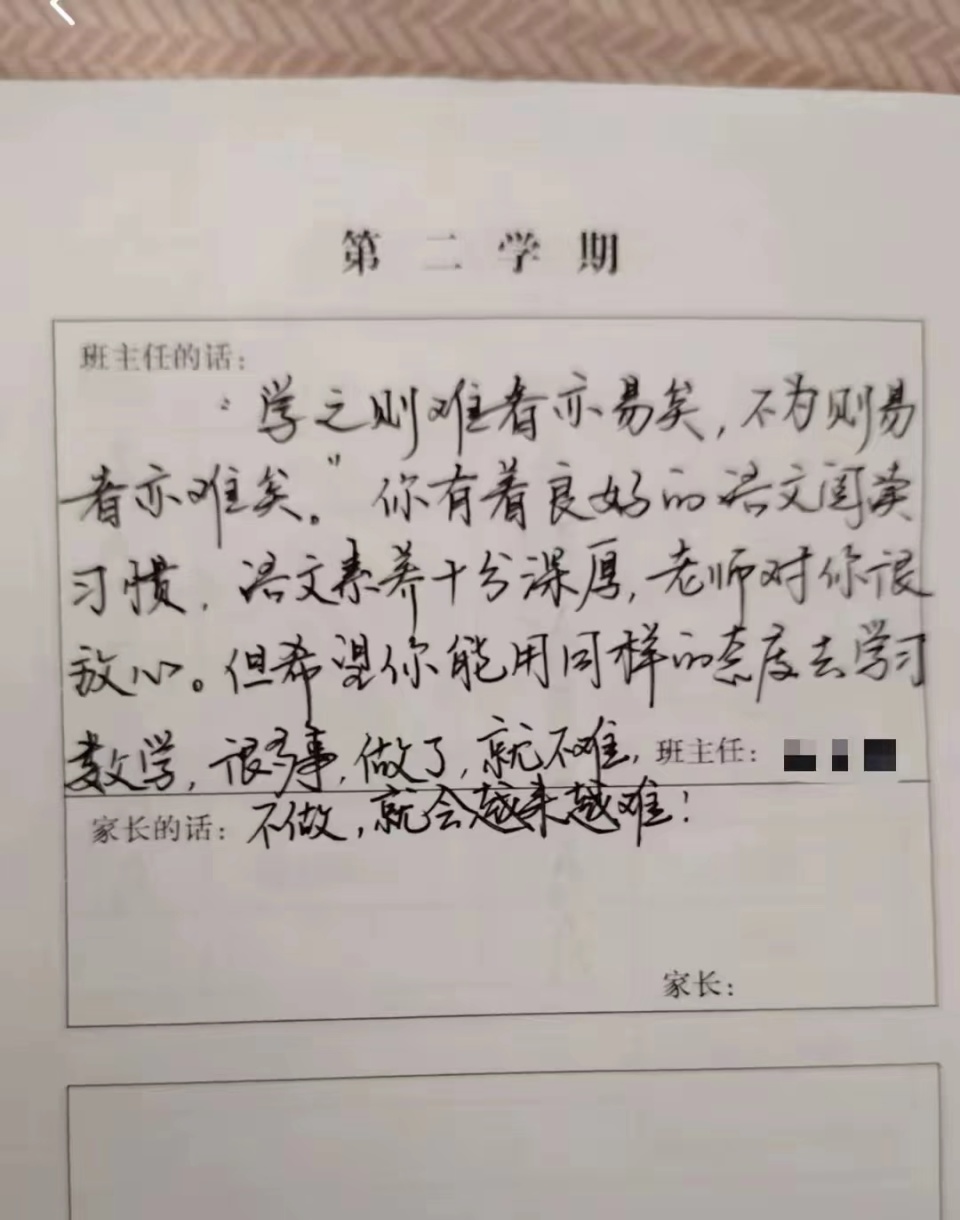 第二学期
班主任的话：
“学之则难者亦易矣，不为则易
者亦难矣。”你有着良好的语文阅读
习惯，语文素养十分深厚，老师对你很
放心。但希望你能用同样的态度去学习
数学，很多事，做了，就不难，班主任：
家长的话：不做，就会越来越难！
家长：